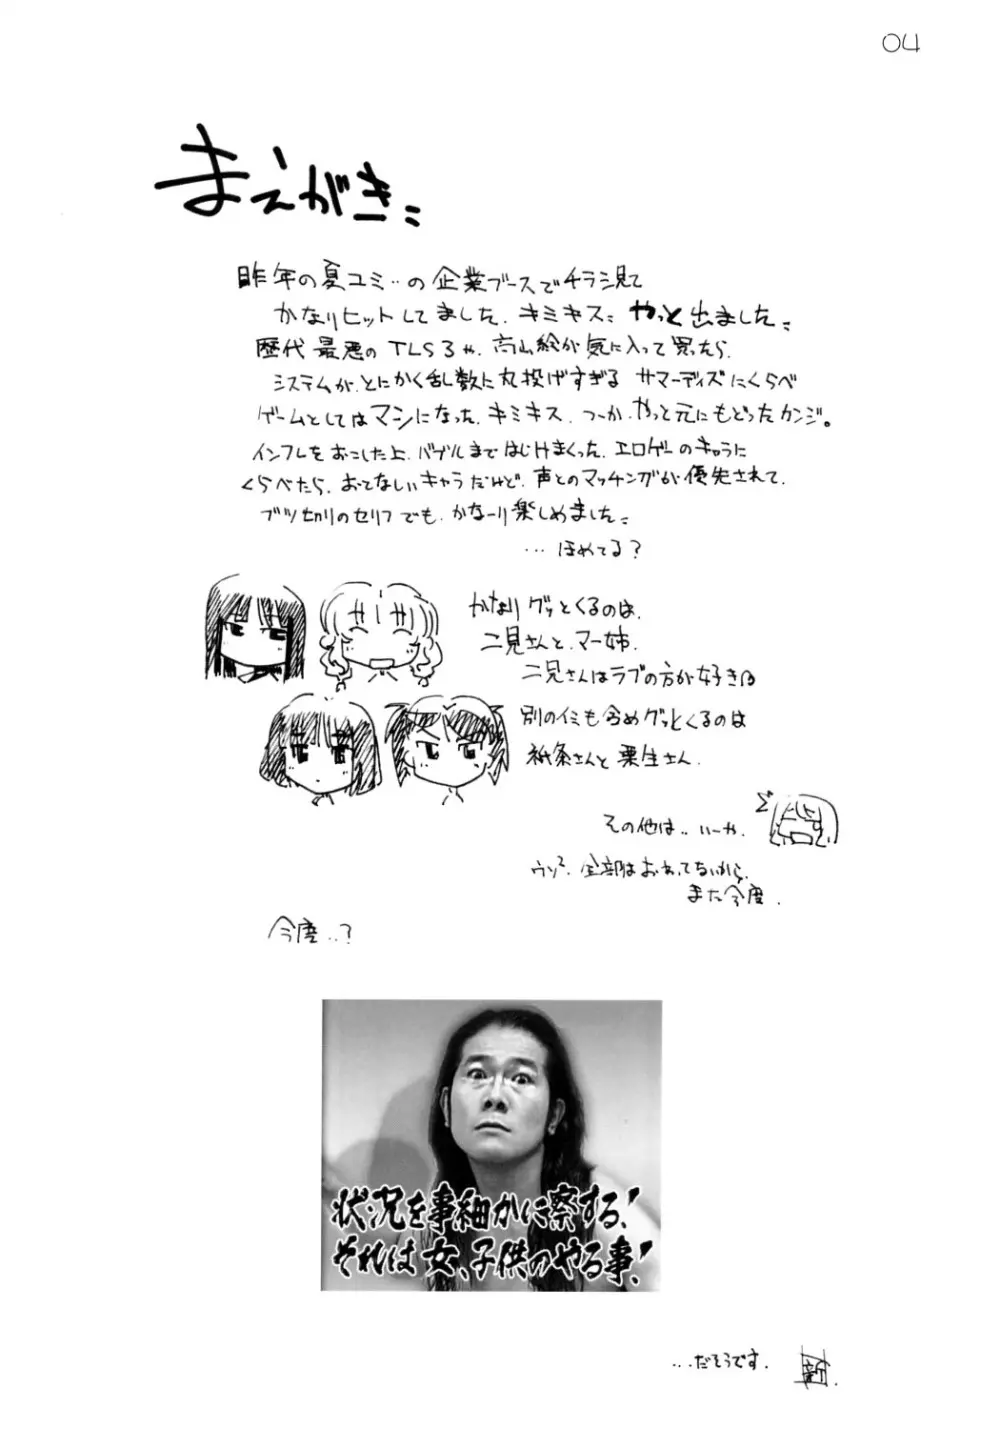 04
まえがき
昨年の夏コミ‥の企業ブースでチラシ見て
かなりヒットしてました、キミキス やっと出ました
歴代最悪のTLS3や、高山絵が気に入って買ったら、
システムが、とにかく乱数に丸投げすぎる サマーデイズにくらべ
ゲームとしてはマシになった、キミキス、つーか、やっと元にもどったカンジ。
インフレをおこした上、バグルまではじけまくった、エロゲーのキャラに
くらべたら、おとなしいキャラだけど、声とのマッチングが優先されて、
ブツ切りのセリフでも、かなーり楽しめました
…ほめてる?
かなりグッとくるのは、
二見さんと、マー姉、
二見さんはラブの方が好き
別のイミも含めグッとくるのは
祇条さんと栗生さん、
その他は‥いーや、
ウソ²、全部はおわってないから、
また今度、
今度‥?
状況を事細かに察する!
それは女、子供のやる事!
…だそうです、
新